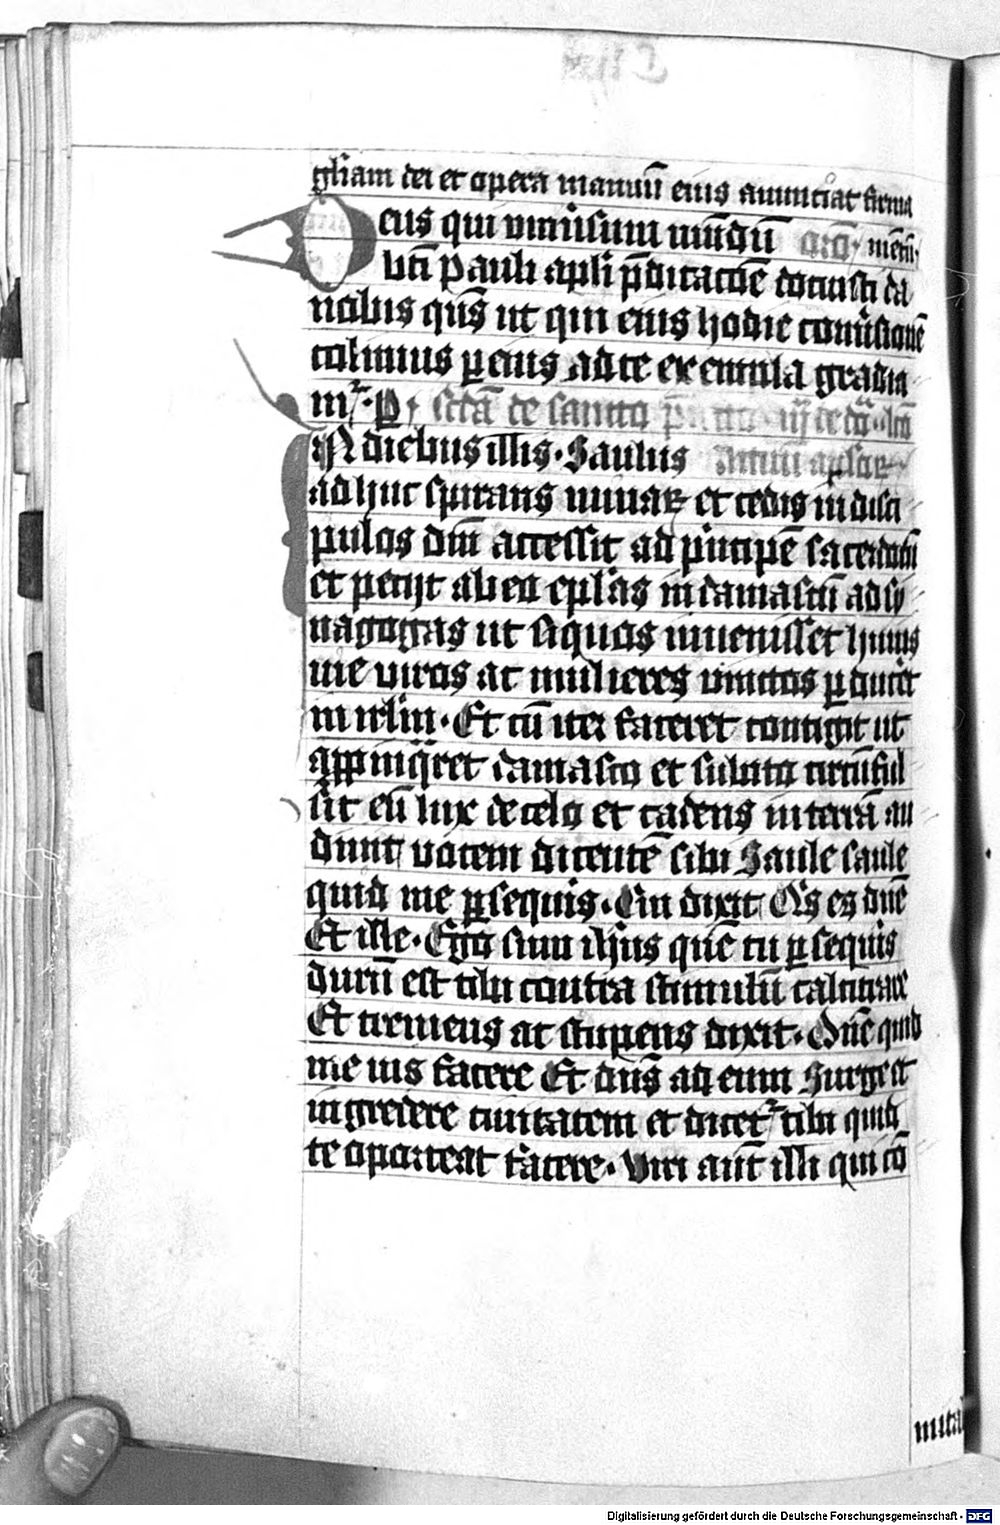 gl̄iam dei et opera manuū eius annunciat firma
Deus qui vniu̾sum mūdū oro̅ mēm̄
bt̄i pauli apl̄i p̄dicacōe docuisti da
nobis q̄s ut qui eius hodie conu̾sionē
colimus ꝑ eius ad te exempla gradia
mr̄. P̲ Sc̄dā de sancto
IN diebus illis. Saulus Actuū apl̄oꝝ
adhuc spirans minaꝝ et cedis in disci
pulos dn̄i accessit ad p̄ncipē sacerdotū
et petijt ab eo ep̄las in damascū ad sy
nagogas ut siquos inuenisset huius
uie viros ac mulieres vinctos ꝑduceret
in irl̄m. Et cū iter faceret contigit ut
appinq̄ret damasco et subito circūful
sit eū lux de celo et cadens in terrā au
diuit vocem dicentē sibi Saule saule
quid me ꝑsequis. Qui dixit Q̄s es dn̄e
Et ille. Ego sum ih̄us quē tu ꝑsequis
durū est tibi contra stimulū calcitrare
Et tremens ac stupens dixit. Dn̄e quid
me uis facere Et dn̄s ad eum Surge et
ingredere ciuitatem et dicetr̄ tibi quid
te oporteat facere. Viri aūt illi qui cō
mita
Digitalisierung gefördert durch die Deutsche Forschungsgemeinschaft - DFG